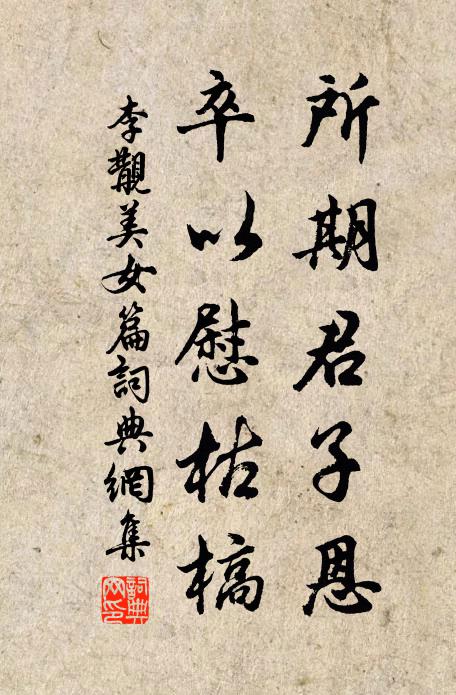 所期君子恩
卒以慰枯槁
李覯美女篇詞典網集
詞典网印